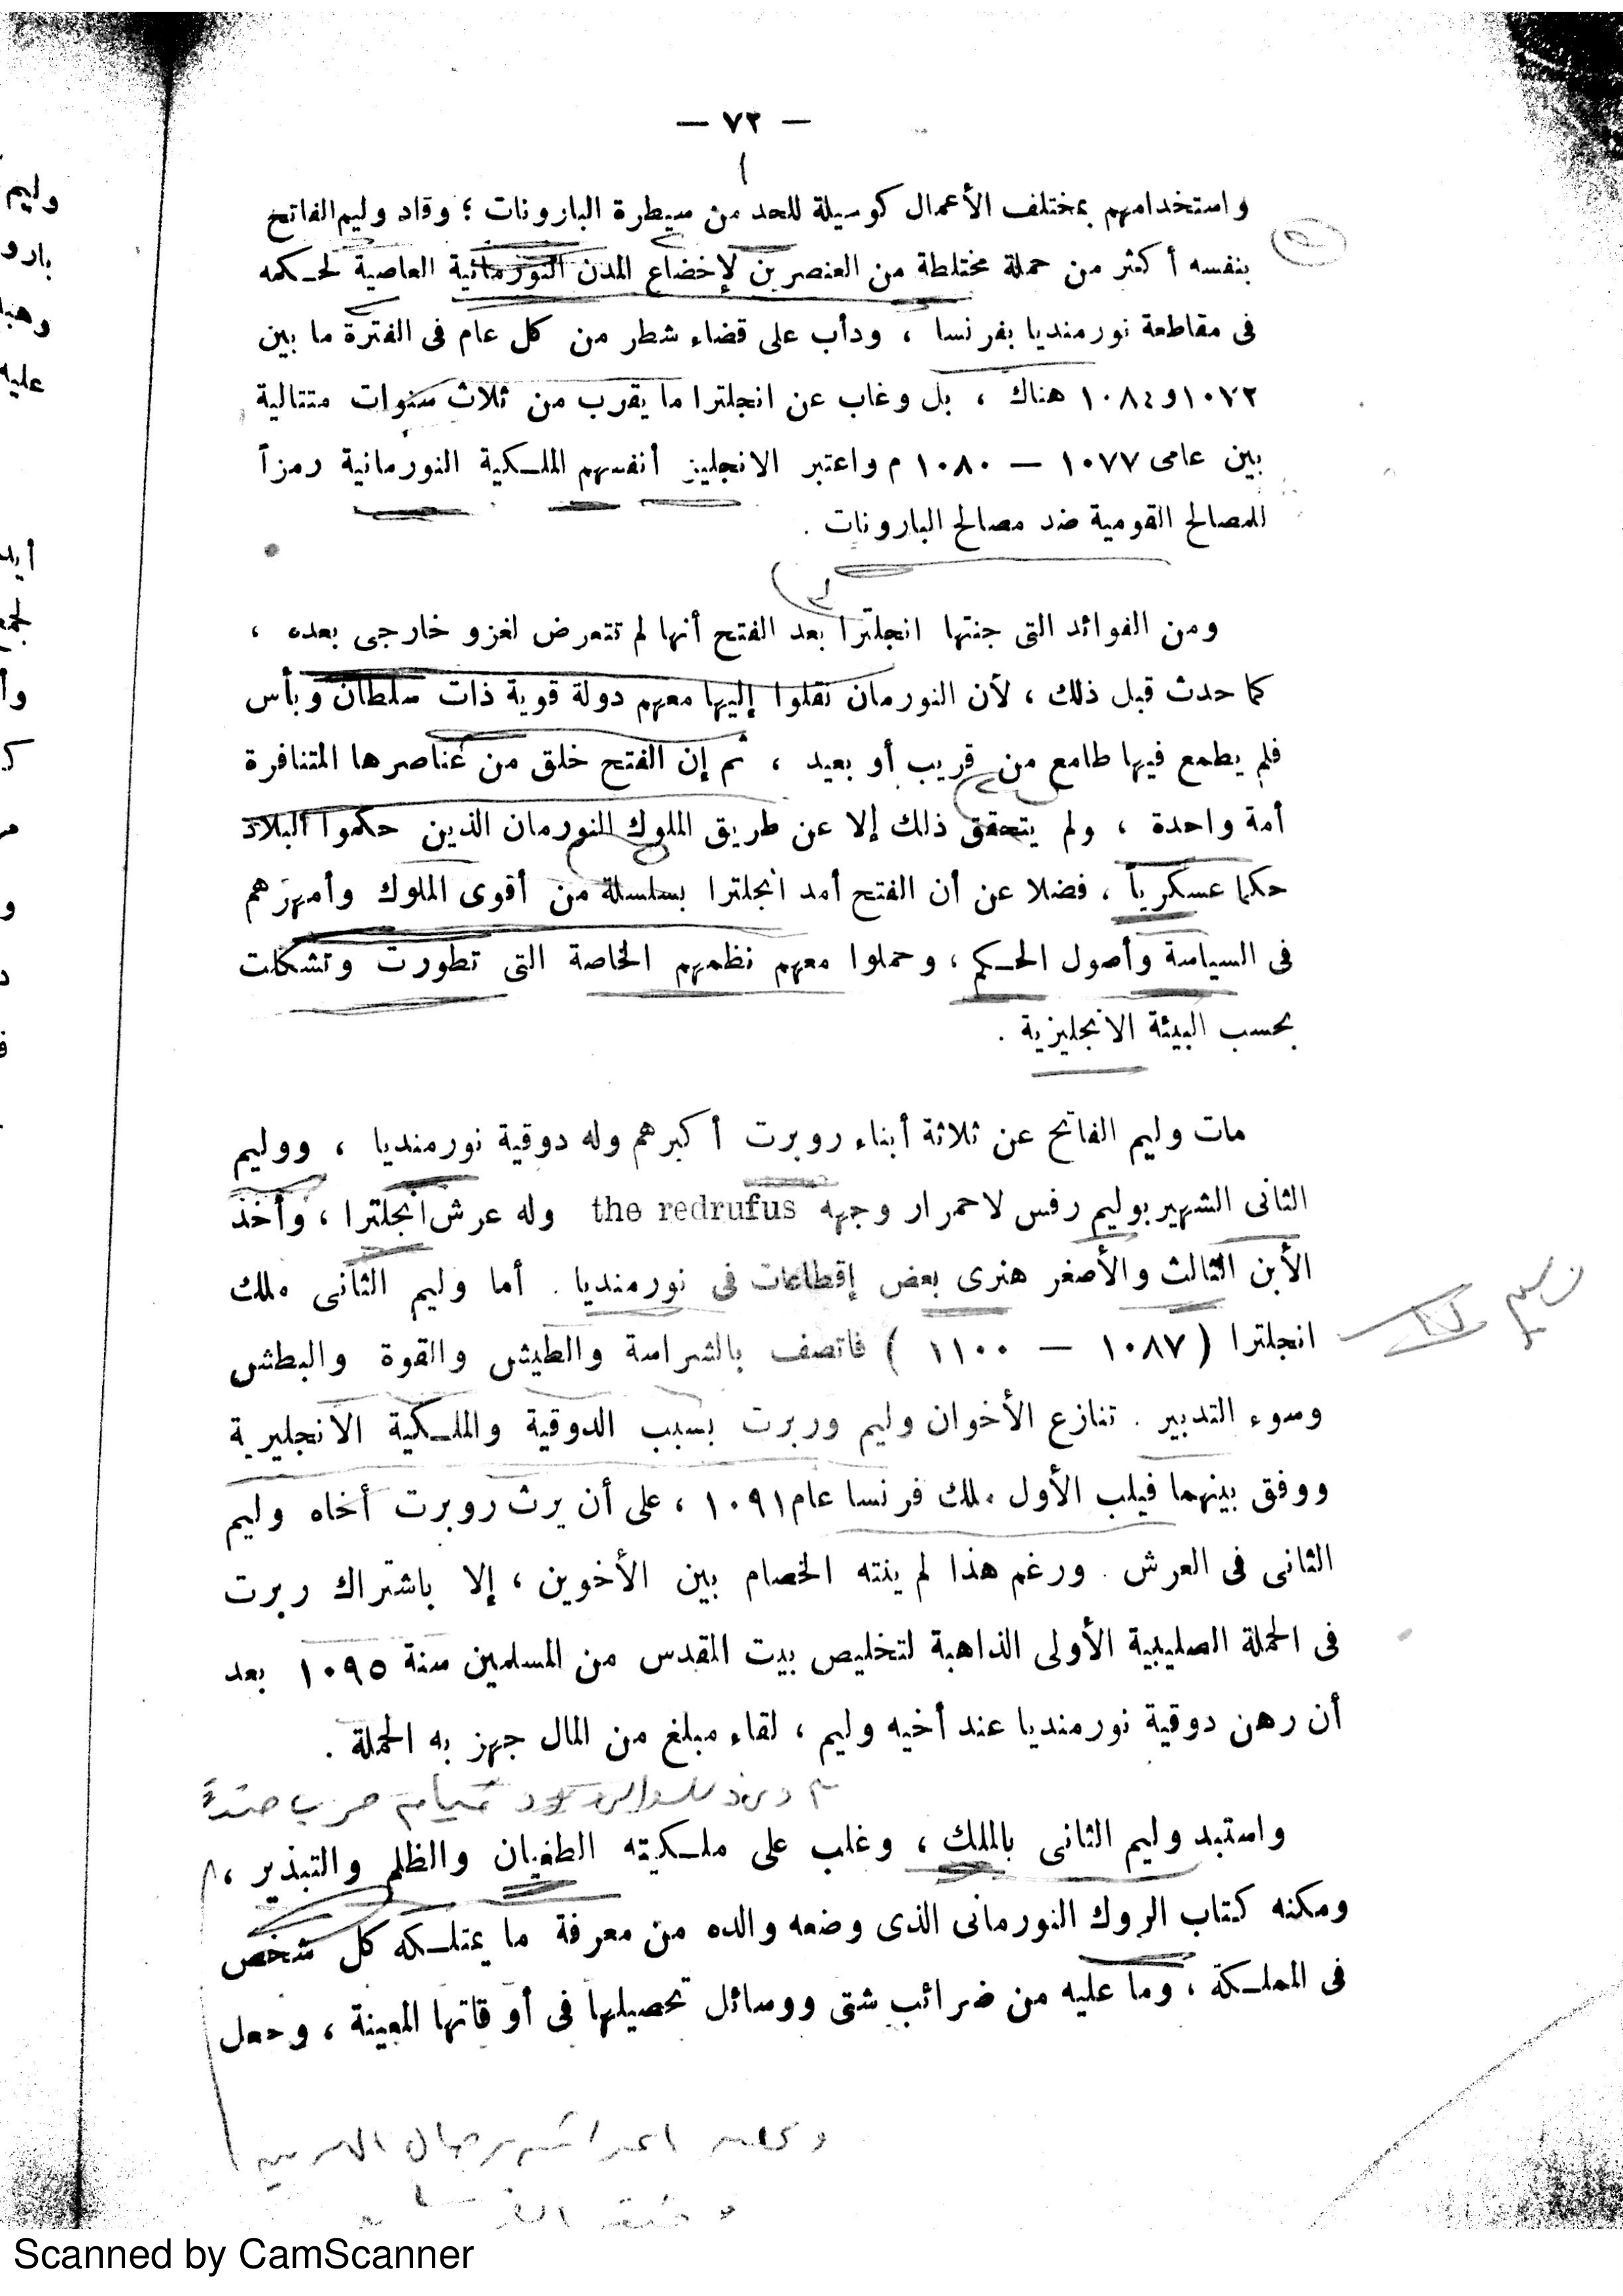 — ٧٢ —
واستخدامهم بمختلف الأعمال كوسيلة للحد من سيطرة البارونات ؛ وقاد وليم الفاتح
بنفسه أكثر من حملة مختلطة من العنصرين لإخضاع المدن النورمانية العاصية لحكمه
فى مقاطعة نورمنديا بفرنسا ، ودأب على قضاء شطر من كل عام فى الفترة ما بين
١٠٧٢و١٠٨٤ هناك ، بل وغاب عن انجلترا ما يقرب من ثلاث سنوات متتالية
بين عامى ١٠٧٧ — ١٠٨٠ م واعتبر الانجليز أنفسهم الملكية النورمانية رمزاً
للمصالح القومية ضد مصالح البارونات .
ومن الفوائد التى جنتها انجلترا بعد الفتح أنها لم تتعرض لغزو خارجى بعده ،
كما حدث قبل ذلك ، لأن النورمان نقلوا إليها معهم دولة قوية ذات سلطان وبأس
فلم يطمع فيها طامع من قريب أو بعيد ، ثم إن الفتح خلق من عناصرها المتنافرة
أمة واحدة ، ولم يتحقق ذلك إلا عن طريق الملوك النورمان الذين حكموا البلاد
حكما عسكرياً ، فضلا عن أن الفتح أمد انجلترا بسلسلة من أقوى الملوك وأمهرهم
فى السياسة وأصول الحكم ، وحملوا معهم نظمهم الخاصة التى تطورت وتشكلت
بحسب البيئة الانجليزية .
مات وليم الفاتح عن ثلاثة أبناء روبرت أكبرهم وله دوقية نورمنديا ، ووليم
الثانى الشهير بوليم رفس لاحمرار وجهه the redrufus وله عرش انجلترا ، وأخذ
الأبن الثالث والأصغر هنرى بعض إقطاعات فى نورمنديا . أما وليم الثانى ملك
انجلترا ( ١٠٨٧ — ١١٠٠ ) فاتصف بالشراسة والطيش والقوة والبطش
وسوء التدبير . تنازع الأخوان وليم وربرت بسبب الدوقية والملكية الانجليزية
ووفق بينهما فيلب الأول ملك فرنسا عام ١٠٩١ ، على أن يرث روبرت أخاه وليم
الثانى فى العرش . ورغم هذا لم ينته الخصام بين الأخوين ، إلا باشتراك ربرت
فى الحملة الصليبية الأولى الذاهبة لتخليص بيت المقدس من المسلمين سنة ١٠٩٥ بعد
أن رهن دوقية نورمنديا عند أخيه وليم ، لقاء مبلغ من المال جهز به الحملة .
واستبد وليم الثانى بالملك ، وغلب على ملكيته الطغيان والظلم والتبذير ،
ومكنه كتاب الروك النورمانى الذى وضعه والده من معرفة ما يمتلكه كل شخص
فى المملكة ، وما عليه من ضرائب شتى ووسائل تحصيلها فى أوقاتها المعينة ، وجعل
Scanned by CamScanner